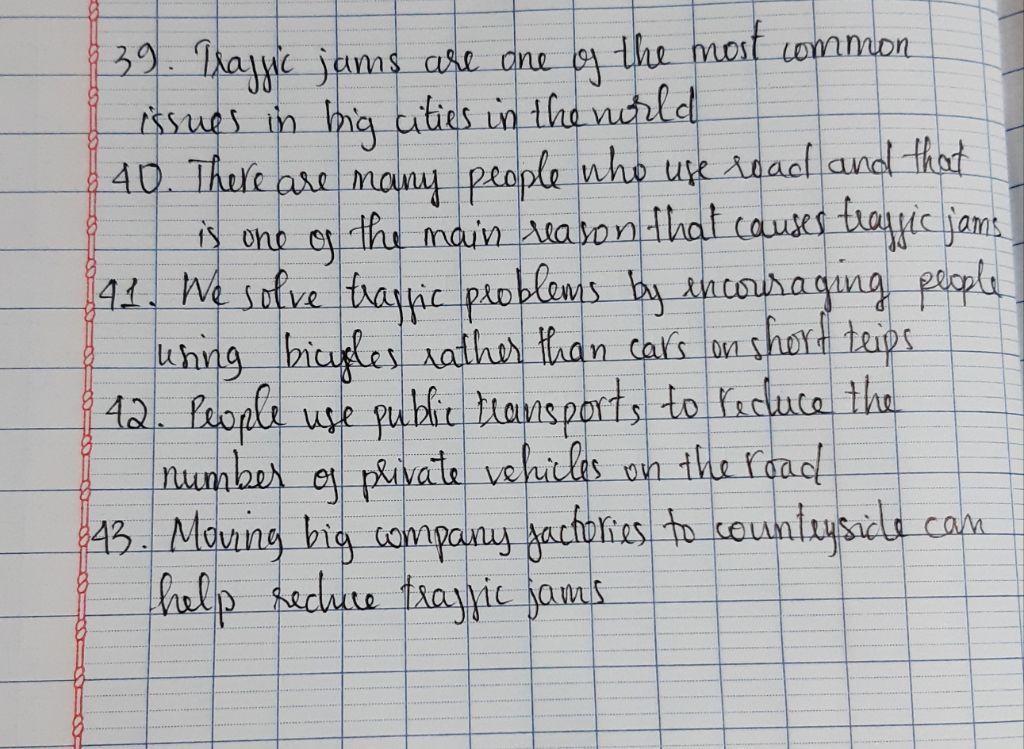 39. Traffic jams are one of the most common
issues in big cities in the world
40. There are many people who use road and that
is one of the main reason that causes traffic jams
41. We solve traffic problems by encouraging people
using bicycles rather than cars on short trips
42. People use public transports to reduce the
number of private vehicles on the road
43. Moving big company factories to countryside can
help reduce traffic jams